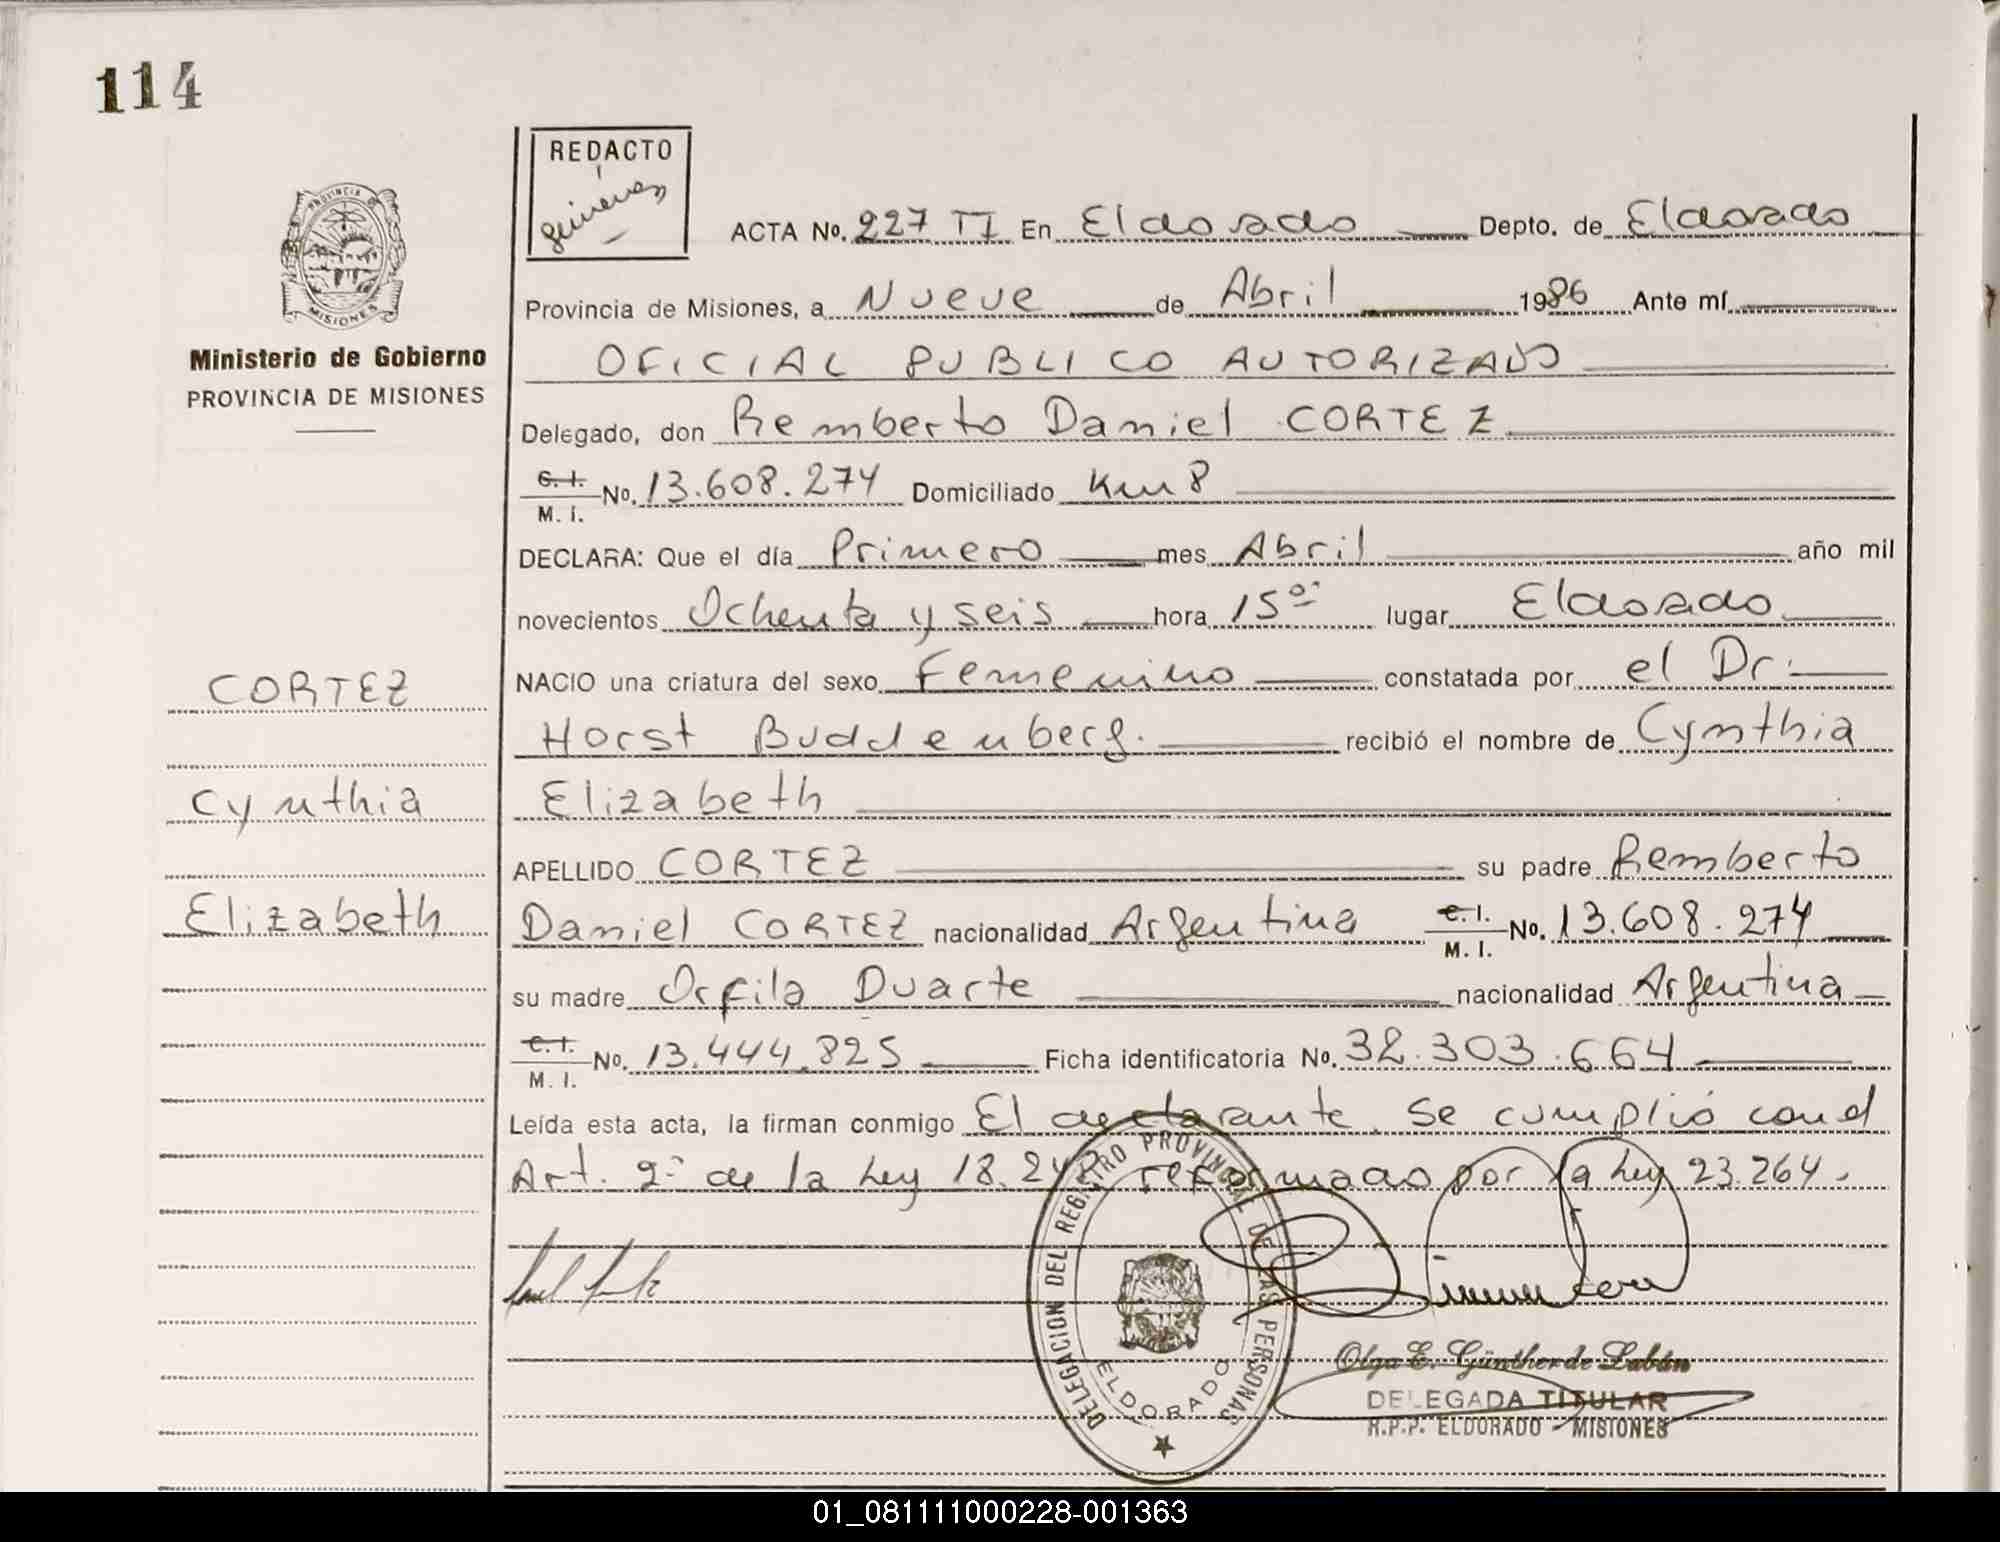 114
REDACTO
PROVINCIA
MISIONES
Ministerio de Gobierno
PROVINCIA DE MISIONES
ACTA No. 227 TI En Eldorado Depto. de Eldorado
Provincia de Misiones, a Nueve de Abril 1986 Ante mí
OFICIAL PUBLICO AUTORIZADO
Delegado, don Remberto Daniel CORTEZ
C. I. M. I. No. 13.608.274 Domiciliado Km 8
DECLARA: Que el día Primero mes Abril año mil
novecientos Ochenta y seis hora 15⁰⁰ lugar Eldorado
NACIO una criatura del sexo Femenino constatada por el Dr.
Horst Buddenberg. recibió el nombre de Cynthia
Elizabeth
APELLIDO CORTEZ su padre Remberto
Daniel CORTEZ nacionalidad Argentina C. I. M. I. No. 13.608.274
su madre Orfila Duarte nacionalidad Argentina
C. I. M. I. No. 13.444.825 Ficha identificatoria No. 32.303.664
Leída esta acta, la firman conmigo El declarante. Se cumplió con el
Art. 2° de la Ley 18.248 reformado por la Ley 23.264.
CORTEZ
Cynthia
Elizabeth
DELEGACION DEL REGISTRO PROVINCIAL DE LAS PERSONAS
ELDORADO
Olga E. Günther de Labán
DELEGADA TITULAR
R.P.P. ELDORADO - MISIONES
01_081111000228-001363